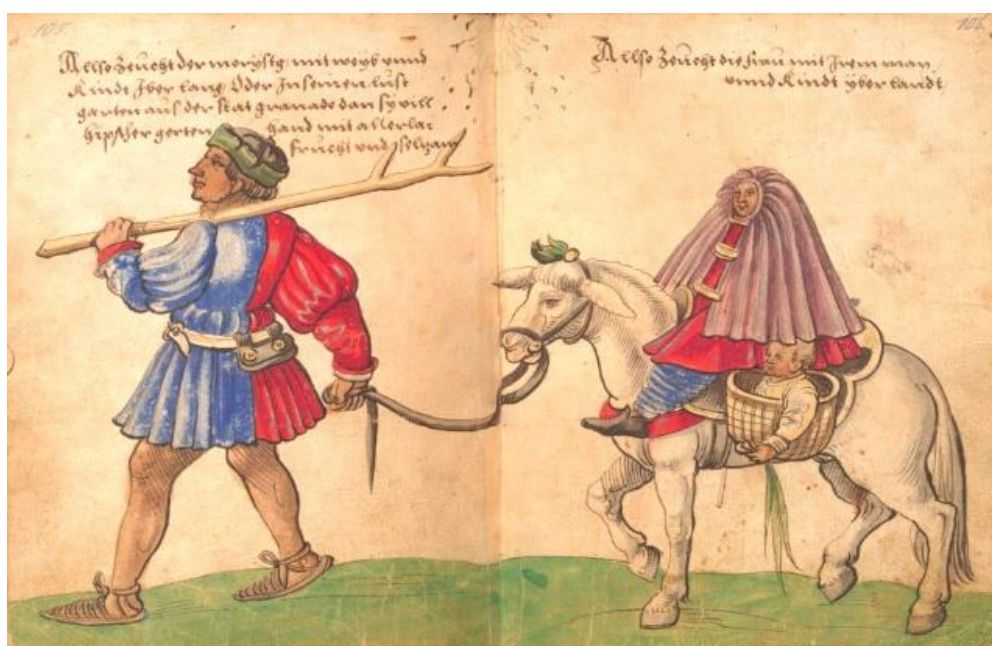 105.
Allso zeücht der morysty mit weyb vnnd
Kindt Iber lang Oder In seinen lust
garten aus der stat granada dan sy vill
hipscher gerten hand mit allerlai
frücht vnd selzam
106.
Allso zeücht die frau mit Irem man
vnnd Kindt yber landt